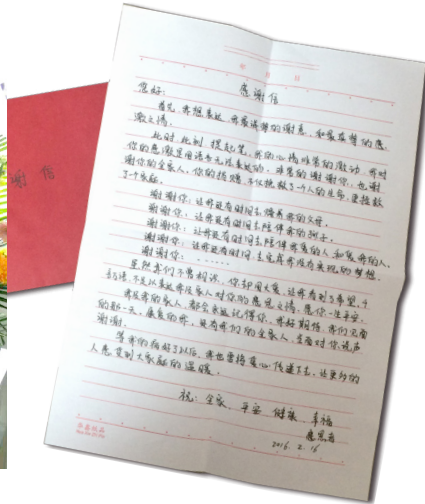 谢信
年 月 日
感谢信
您好:
首先,我想表达,我最诚挚的谢意,和最真挚的感
激之情。
此时此刻,提起笔,我的心情非常的激动,我对
你的感激是用语言无法表达的,非常的谢谢你,也谢
谢你的全家人。你的捐赠不仅挽救了一个人的生命,更拯救
了一个家庭。
谢谢你:让我还有时间去赡养我的父母。
谢谢你:让我还有时间去陪伴我的
谢谢你:让我还有时间去陪伴我爱的人和爱我的人。
谢谢你:让我还有时间去完成我没有实现的梦想。
谢谢你: ……
虽然我们不曾相识,你却用大爱,让我看到了希望,千
言万语,不足以表达我及家人对你的感恩之情,愿你一生平安,
我及我的家人,都会永远记得你,我好期待,我们见面
的那一天,康复的我,还有我们的全家人,当面对你说声
谢谢。
等我的病好了以后,我也要将爱心传递下去,让更多的
人感受到大家庭的温暖。
祝:全家、平安 健康、幸福
感恩者
2016. 2. 16